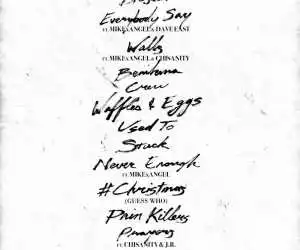 Everybody Say
FT. MIKExANGEL & DAVE EAST
Waltz
FT. MIKExANGEL & CHISANITY
Benihana
Crew
Waffles & Eggs
Used To
Stuck
Never Enough
FT. MIKExANGEL
#Christmas
(GUESS WHO)
Pain Killers
FT. CHISANITY & J.R.